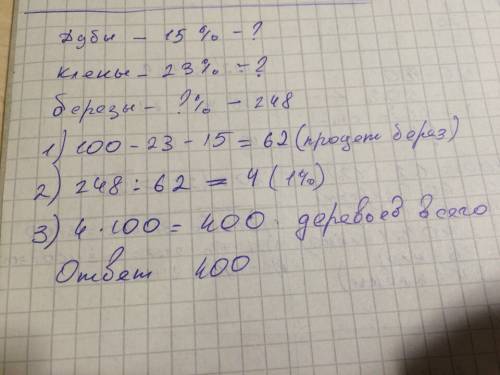 Дубы – 15% – ?
Клены – 23% – ?
березы – ?% – 248
1) 100 – 23 – 15 = 62 (процент бераз)
2) 248 : 62 = 4 (1%)
3) 4 · 100 = 400 деревьев всего
Ответ 400